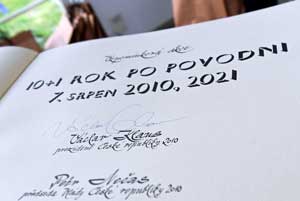 Vzpomínková akce
10+1 ROK PO POVODNI
7. SRPEN 2010, 2021
Václav Klaus
prezident České republiky 2010
Petr Nečas
předseda vlády České republiky 2010